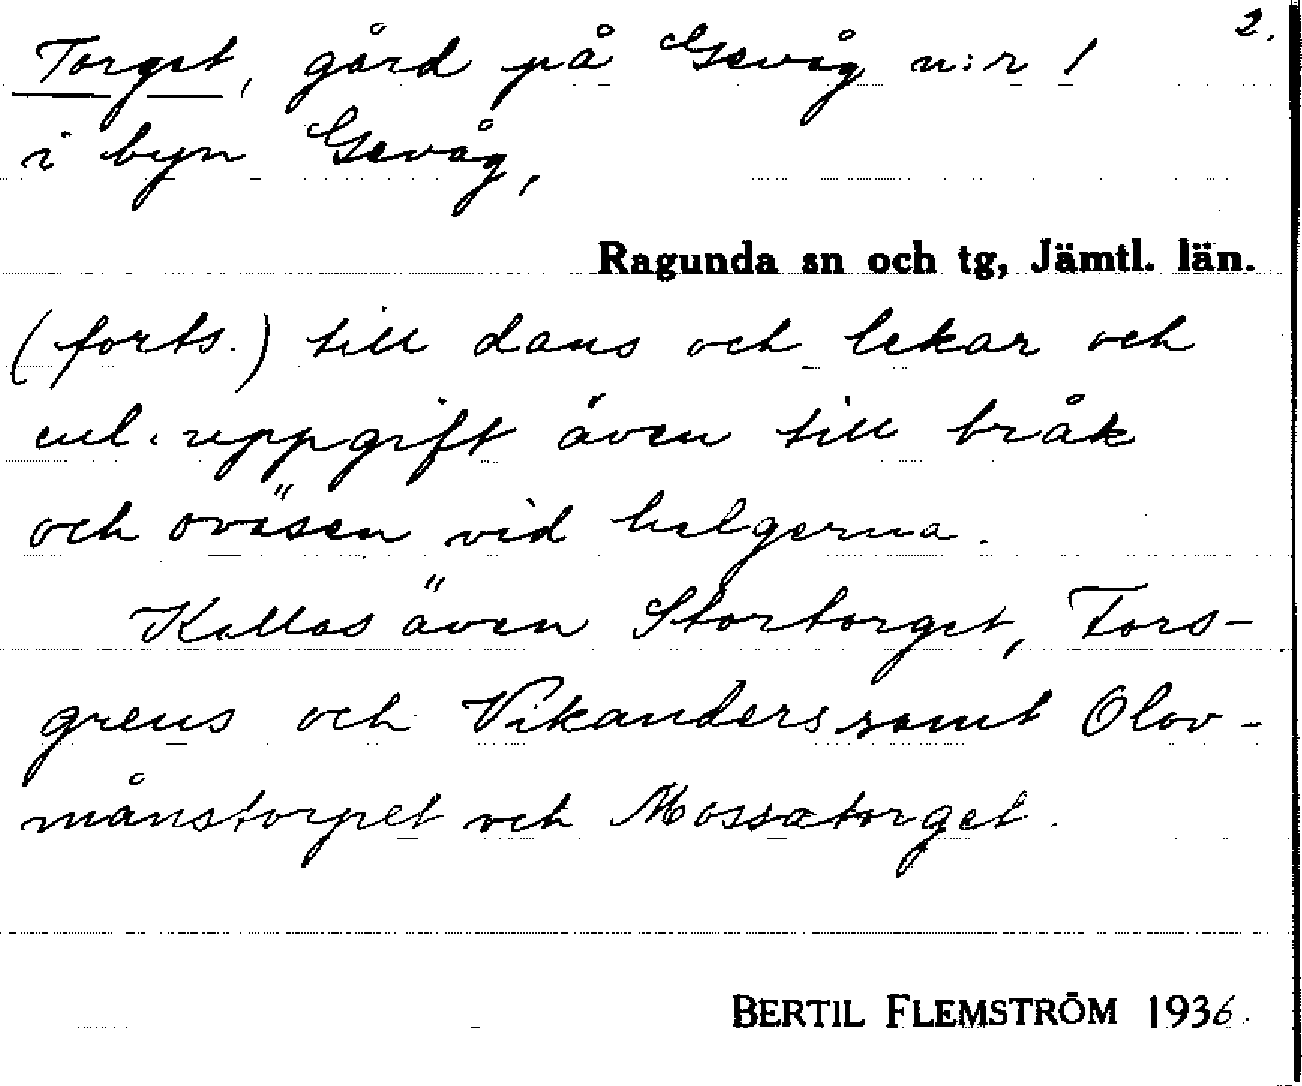 2.
Torget, gård på Gevåg n:r 1
i byn Gevåg,
Ragunda sn och tg, Jämtl. län.
(forts.) till dans och lekar och
enl. uppgift även till bråk
och oväsen vid helgerna.
Kallas även Stortorget, Fors-
grens och Vikanders samt Olov-
månstorpet och Mossatorget.
BERTIL FLEMSTRÖM 1936.